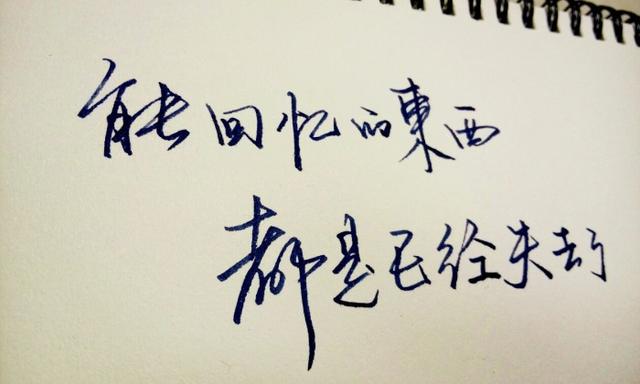 能回忆的東西
都是已经失去了